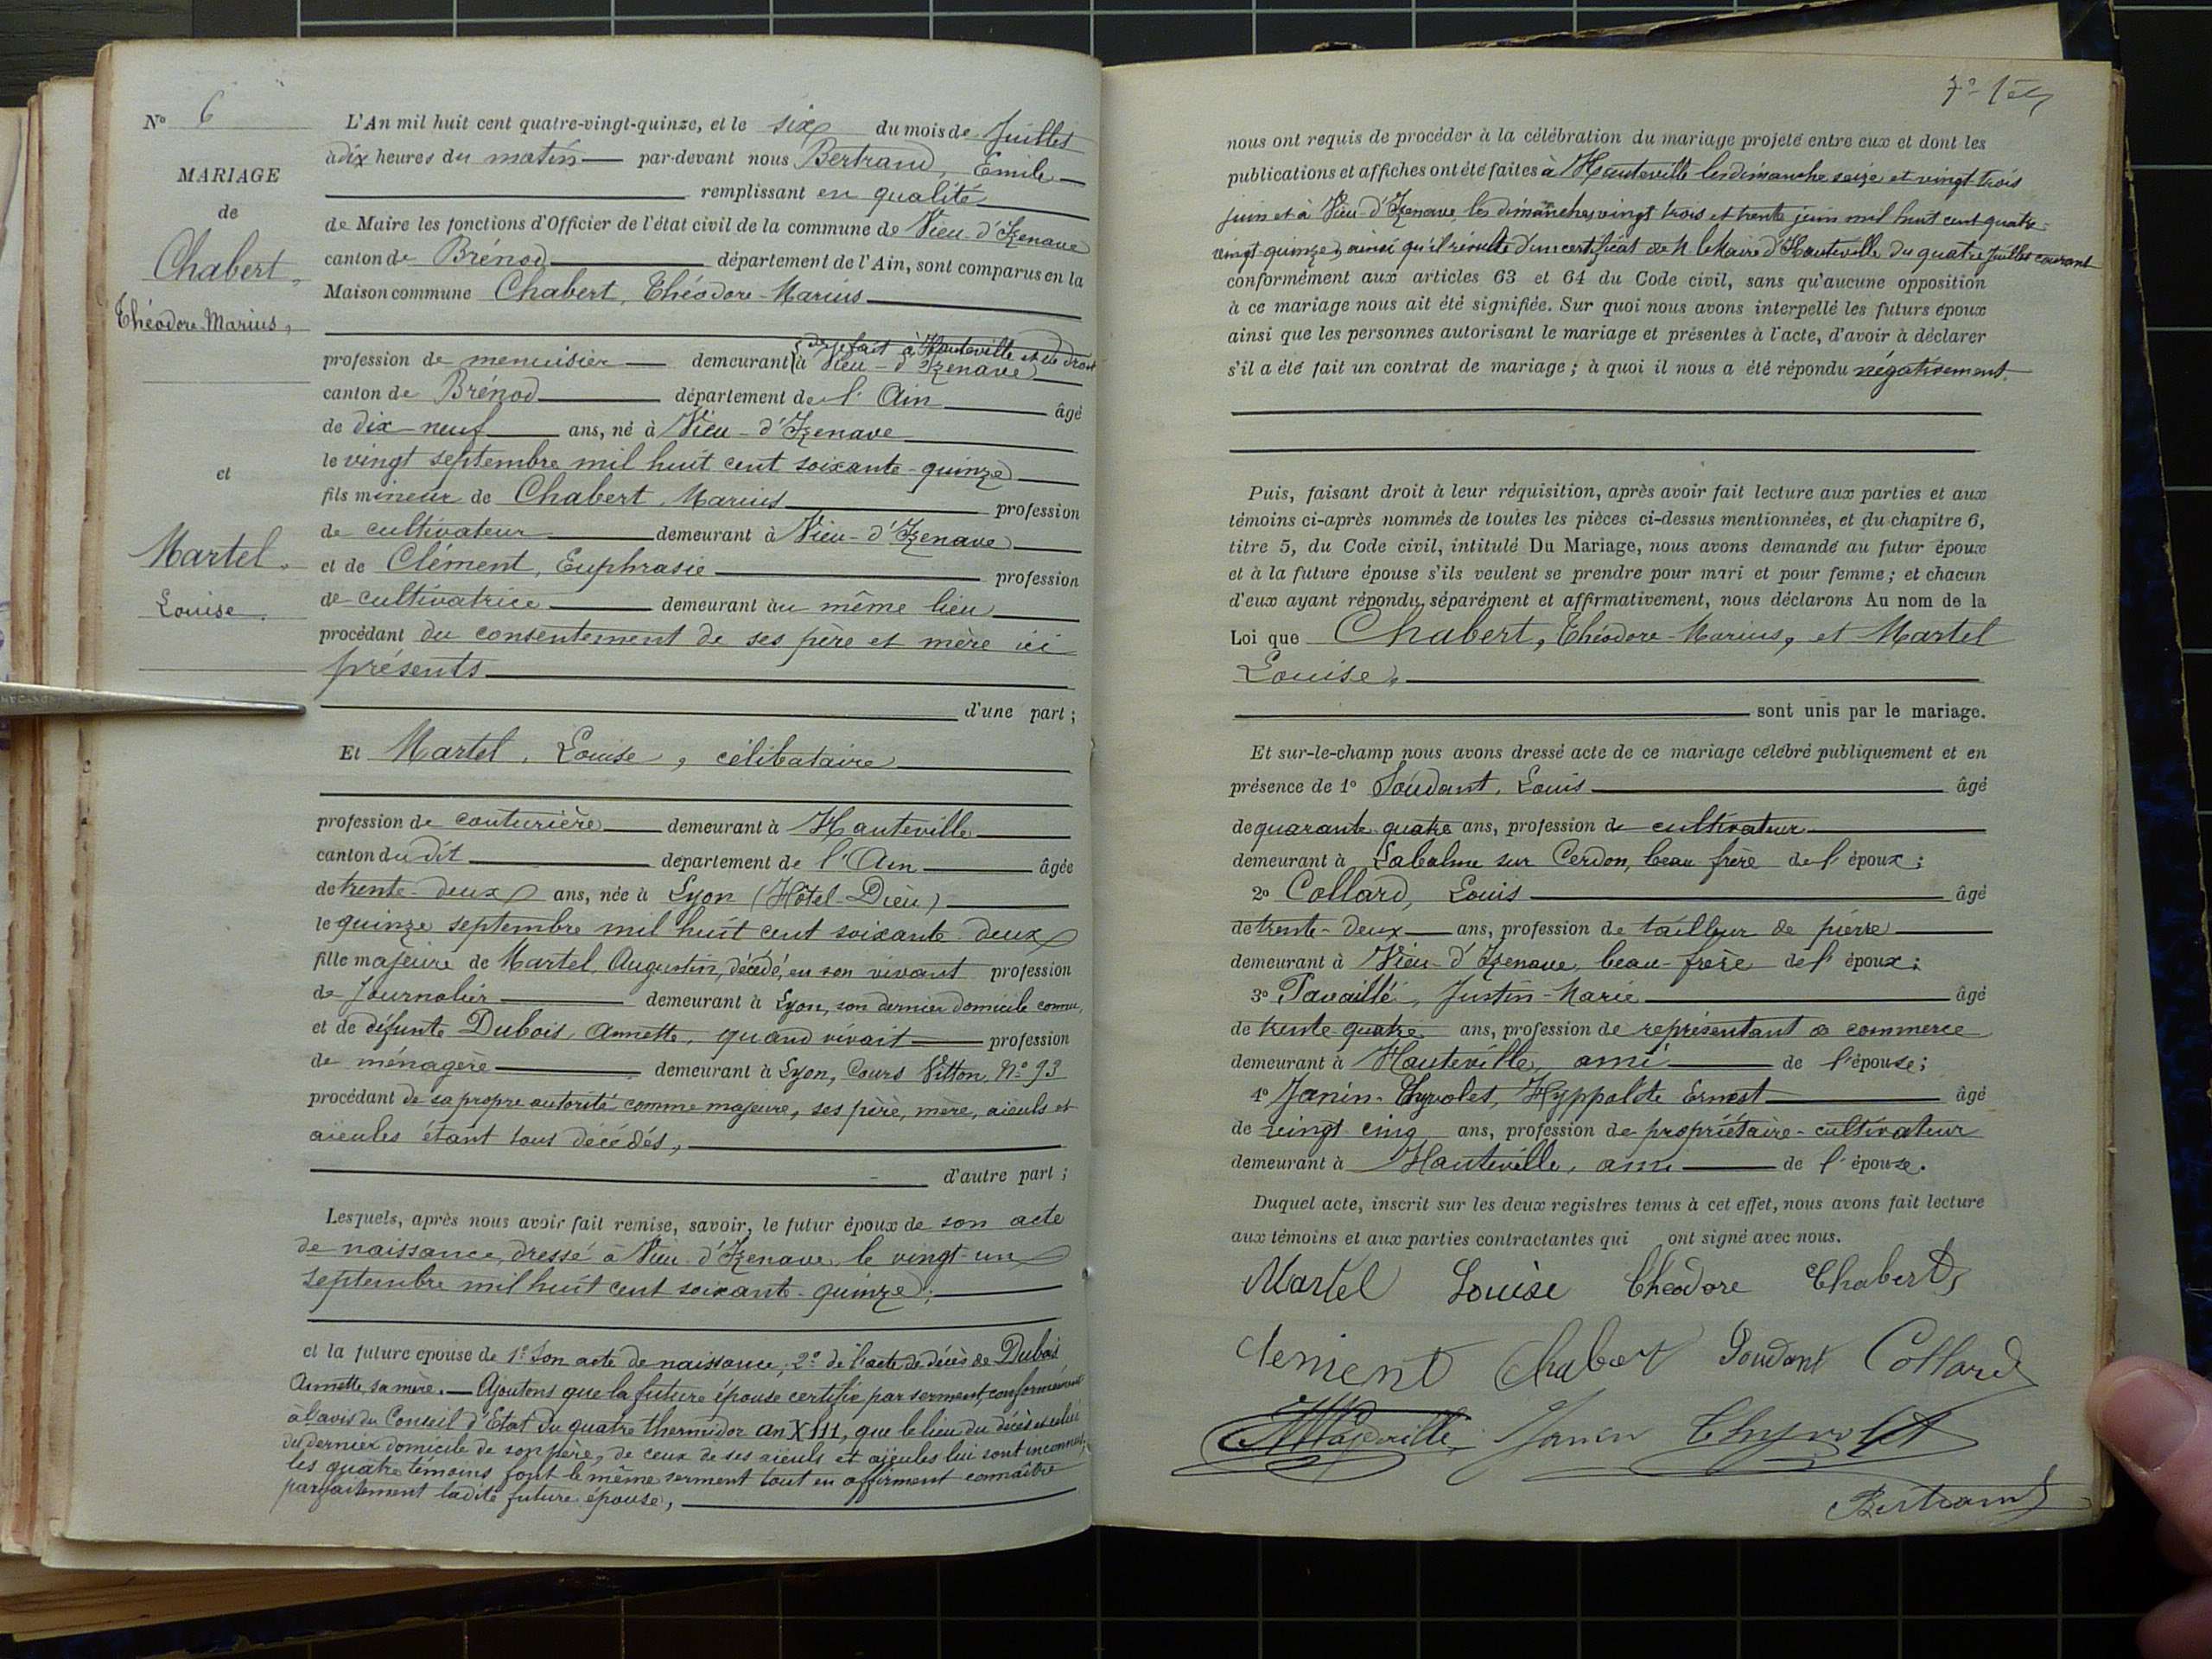 N° 6
MARIAGE
de
Chabert,
Théodore-Marius,
et
Martel,
Louise.
L'An mil huit cent quatre-vingt-quinze, et le six du mois de Juillet
à dix heures du matin par-devant nous Bertrand, Emile
remplissant en qualité
de Maire les fonctions d'Officier de l'état civil de la commune de Vieu-d'Izenave
canton de Brénod département de l'Ain, sont comparus en la
Maison commune Chabert, Théodore-Marius
de fait à Hauteville et de droit
profession de menuisier demeurant à Vieu-d'Izenave
canton de Brénod département de l'Ain âgé
de dix-neuf ans, né à Vieu-d'Izenave
le vingt septembre mil huit cent soixante-quinze
fils mineur de Chabert, Marius profession
de cultivateur demeurant à Vieu-d'Izenave
et de Clément, Euphrasie profession
de cultivatrice demeurant au même lieu
procédant du consentement de ses père et mère ici
présents
d'une part ;
Et Martel, Louise, célibataire
profession de couturière demeurant à Hauteville
canton du dit département de l'Ain âgée
de trente-deux ans, née à Lyon (Hôtel-Dieu)
le quinze septembre mil huit cent soixante-deux
fille majeure de Martel, Augustin, décédé, en son vivant profession
de Journalier demeurant à Lyon, son dernier domicile connu,
et de défunte Dubois, Annette, quand vivait profession
de ménagère demeurant à Lyon, Cours Vitton, N° 93
procédant de sa propre autorité comme majeure, ses père, mère, aïeuls et
aïeules étant tous décédés,
d'autre part ;
Lesquels, après nous avoir fait remise, savoir, le futur époux de son acte
de naissance, dressé à Vieu-d'Izenave, le vingt-un
septembre mil huit cent soixante-quinze ;
et la future épouse de 1° Son acte de naissance, 2° de l'acte de décès de Dubois
Annette, sa mère. — Ajoutons que la future épouse certifie par serment, conformément
à l'avis du Conseil d'Etat du quatre thermidor an XIII, que le lieu du décès et celui
du dernier domicile de son père, de ceux de ses aïeuls et aïeules lui sont inconnus,
les quatre témoins font le même serment tout en affirment connaître
parfaitement ladite future épouse,
nous ont requis de procéder à la célébration du mariage projeté entre eux et dont les
publications et affiches ont été faites à Hauteville les dimanche seize et vingt-trois
juin et à Vieu-d'Izenave les dimanches vingt trois et trente juin mil huit cent quatre-
vingt-quinze, ainsi qu'il résulte d'un certificat de M. le Maire d'Hauteville du quatre Juillet courant
conformément aux articles 63 et 64 du Code civil, sans qu'aucune opposition
à ce mariage nous ait été signifiée. Sur quoi nous avons interpellé les futurs époux
ainsi que les personnes autorisant le mariage et présentes à l'acte, d'avoir à déclarer
s'il a été fait un contrat de mariage ; à quoi il nous a été répondu négativement.
Puis, faisant droit à leur réquisition, après avoir fait lecture aux parties et aux
témoins ci-après nommés de toutes les pièces ci-dessus mentionnées, et du chapitre 6,
titre 5, du Code civil, intitulé Du Mariage, nous avons demandé au futur époux
et à la future épouse s'ils veulent se prendre pour mari et pour femme ; et chacun
d'eux ayant répondu séparément et affirmativement, nous déclarons Au nom de la
Loi que Chabert, Théodore-Marius, et Martel
Louise,
sont unis par le mariage.
Et sur-le-champ nous avons dressé acte de ce mariage célébré publiquement et en
présence de 1° Soudant, Louis âgé
de quarante-quatre ans, profession de cultivateur
demeurant à Labalme sur Cerdon, beau frère de l'époux ;
2° Collard, Louis âgé
de trente-deux ans, profession de tailleur de pierre
demeurant à Vieu-d'Izenave, beau-frère de l'époux ;
3° Justin-Marie âgé
de trente-quatre ans, profession de représentant de commerce
demeurant à Hauteville, ami de l'épouse ;
4° Janin-Thyvolet, Hyppolite Ernest âgé
de vingt cinq ans, profession de propriétaire-cultivateur
demeurant à Hauteville, ami de l'épouse.
Duquel acte, inscrit sur les deux registres tenus à cet effet, nous avons fait lecture
aux témoins et aux parties contractantes qui ont signé avec nous.
Martel Louise Théodore Chabert
Clement Chabert Soudant Collard
Janin Thyvolet
Bertrand